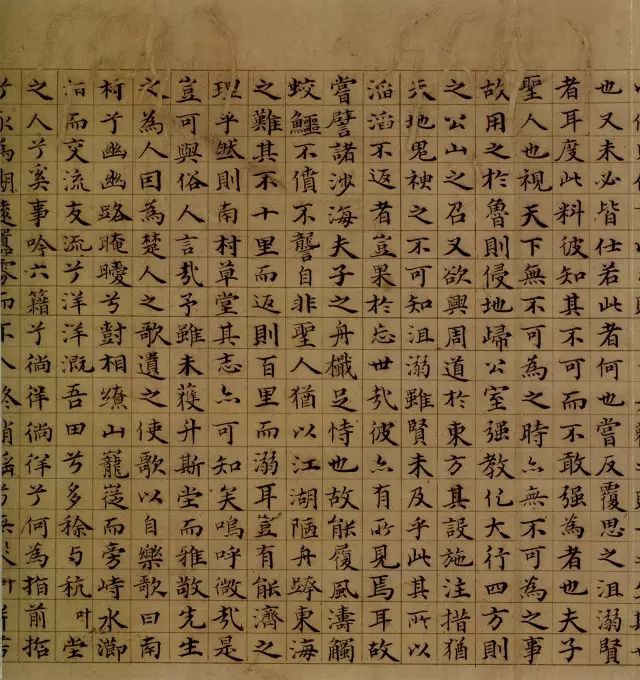 也又未必皆仕若此者何也嘗反覆思之沮溺賢
者耳度此料彼知其不可而不敢强為者也夫子
聖人也視天下無不可為之時亦無不可為之事
故用之於魯則侵地歸公室强教化大行四方則
之公山之召又欲興周道於東方其設施注措猶
天地鬼神之不可知沮溺雖賢未及乎此其所以
滔滔不返者豈果於忘世哉彼亦有所見焉耳故
嘗譬諸涉海夫子之舟檝足恃也故能履風濤觸
蛟鱷不僨不讋自非聖人猶以江湖陋舟躋東海
之難其不十里而返則百里而溺耳豈有能濟之
理乎然則南村草堂其志亦可知矣嗚呼微哉是
豈可與俗人言哉予雖未獲升斯堂而雅敬先生
之為人因為楚人之歌遺之使歌以自樂歌曰南
村兮幽幽路晻曖兮對相繚山巃嵸而旁峙水瀰
而交流友流兮洋洋溉吾田兮多稌与秔叶堂
之人兮奚事吟六籍兮徜徉徜徉兮何為指前